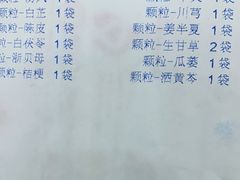 颗粒-白芷 1袋
颗粒-川芎 1袋
颗粒-陈皮 1袋
颗粒-姜半夏 1袋
颗粒-白茯苓 1袋
颗粒-生甘草 2袋
颗粒-浙贝母 1袋
颗粒-瓜蒌 1袋
颗粒-桔梗 1袋
颗粒-酒黄芩 1袋